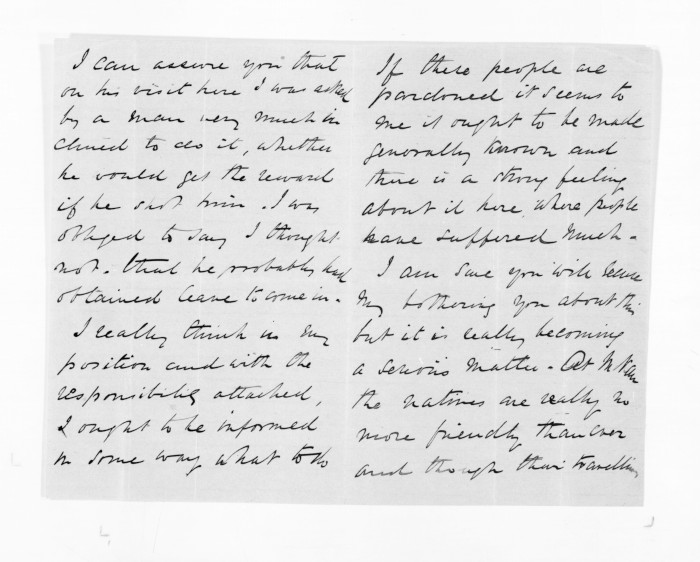 I can assure you that
on his visit here I was asked
by a man very much in
clined to do it, whether
he would get the reward
if he shot him. I was
obliged to say I thought
not. that he probably had
obtained leave to come in.
I really think in my
position and with the
responsibility attached,
I ought to be informed
in some way what to do
If these people are
pardoned it seems to
me it ought to be made
generally known and
there is a strong feeling
about it here, where people
have suffered much.
I am sure you will
my bothering you about this
but it is really becoming
a serious matter. At
the natives are really no
more friendly than ever
and though their travelling